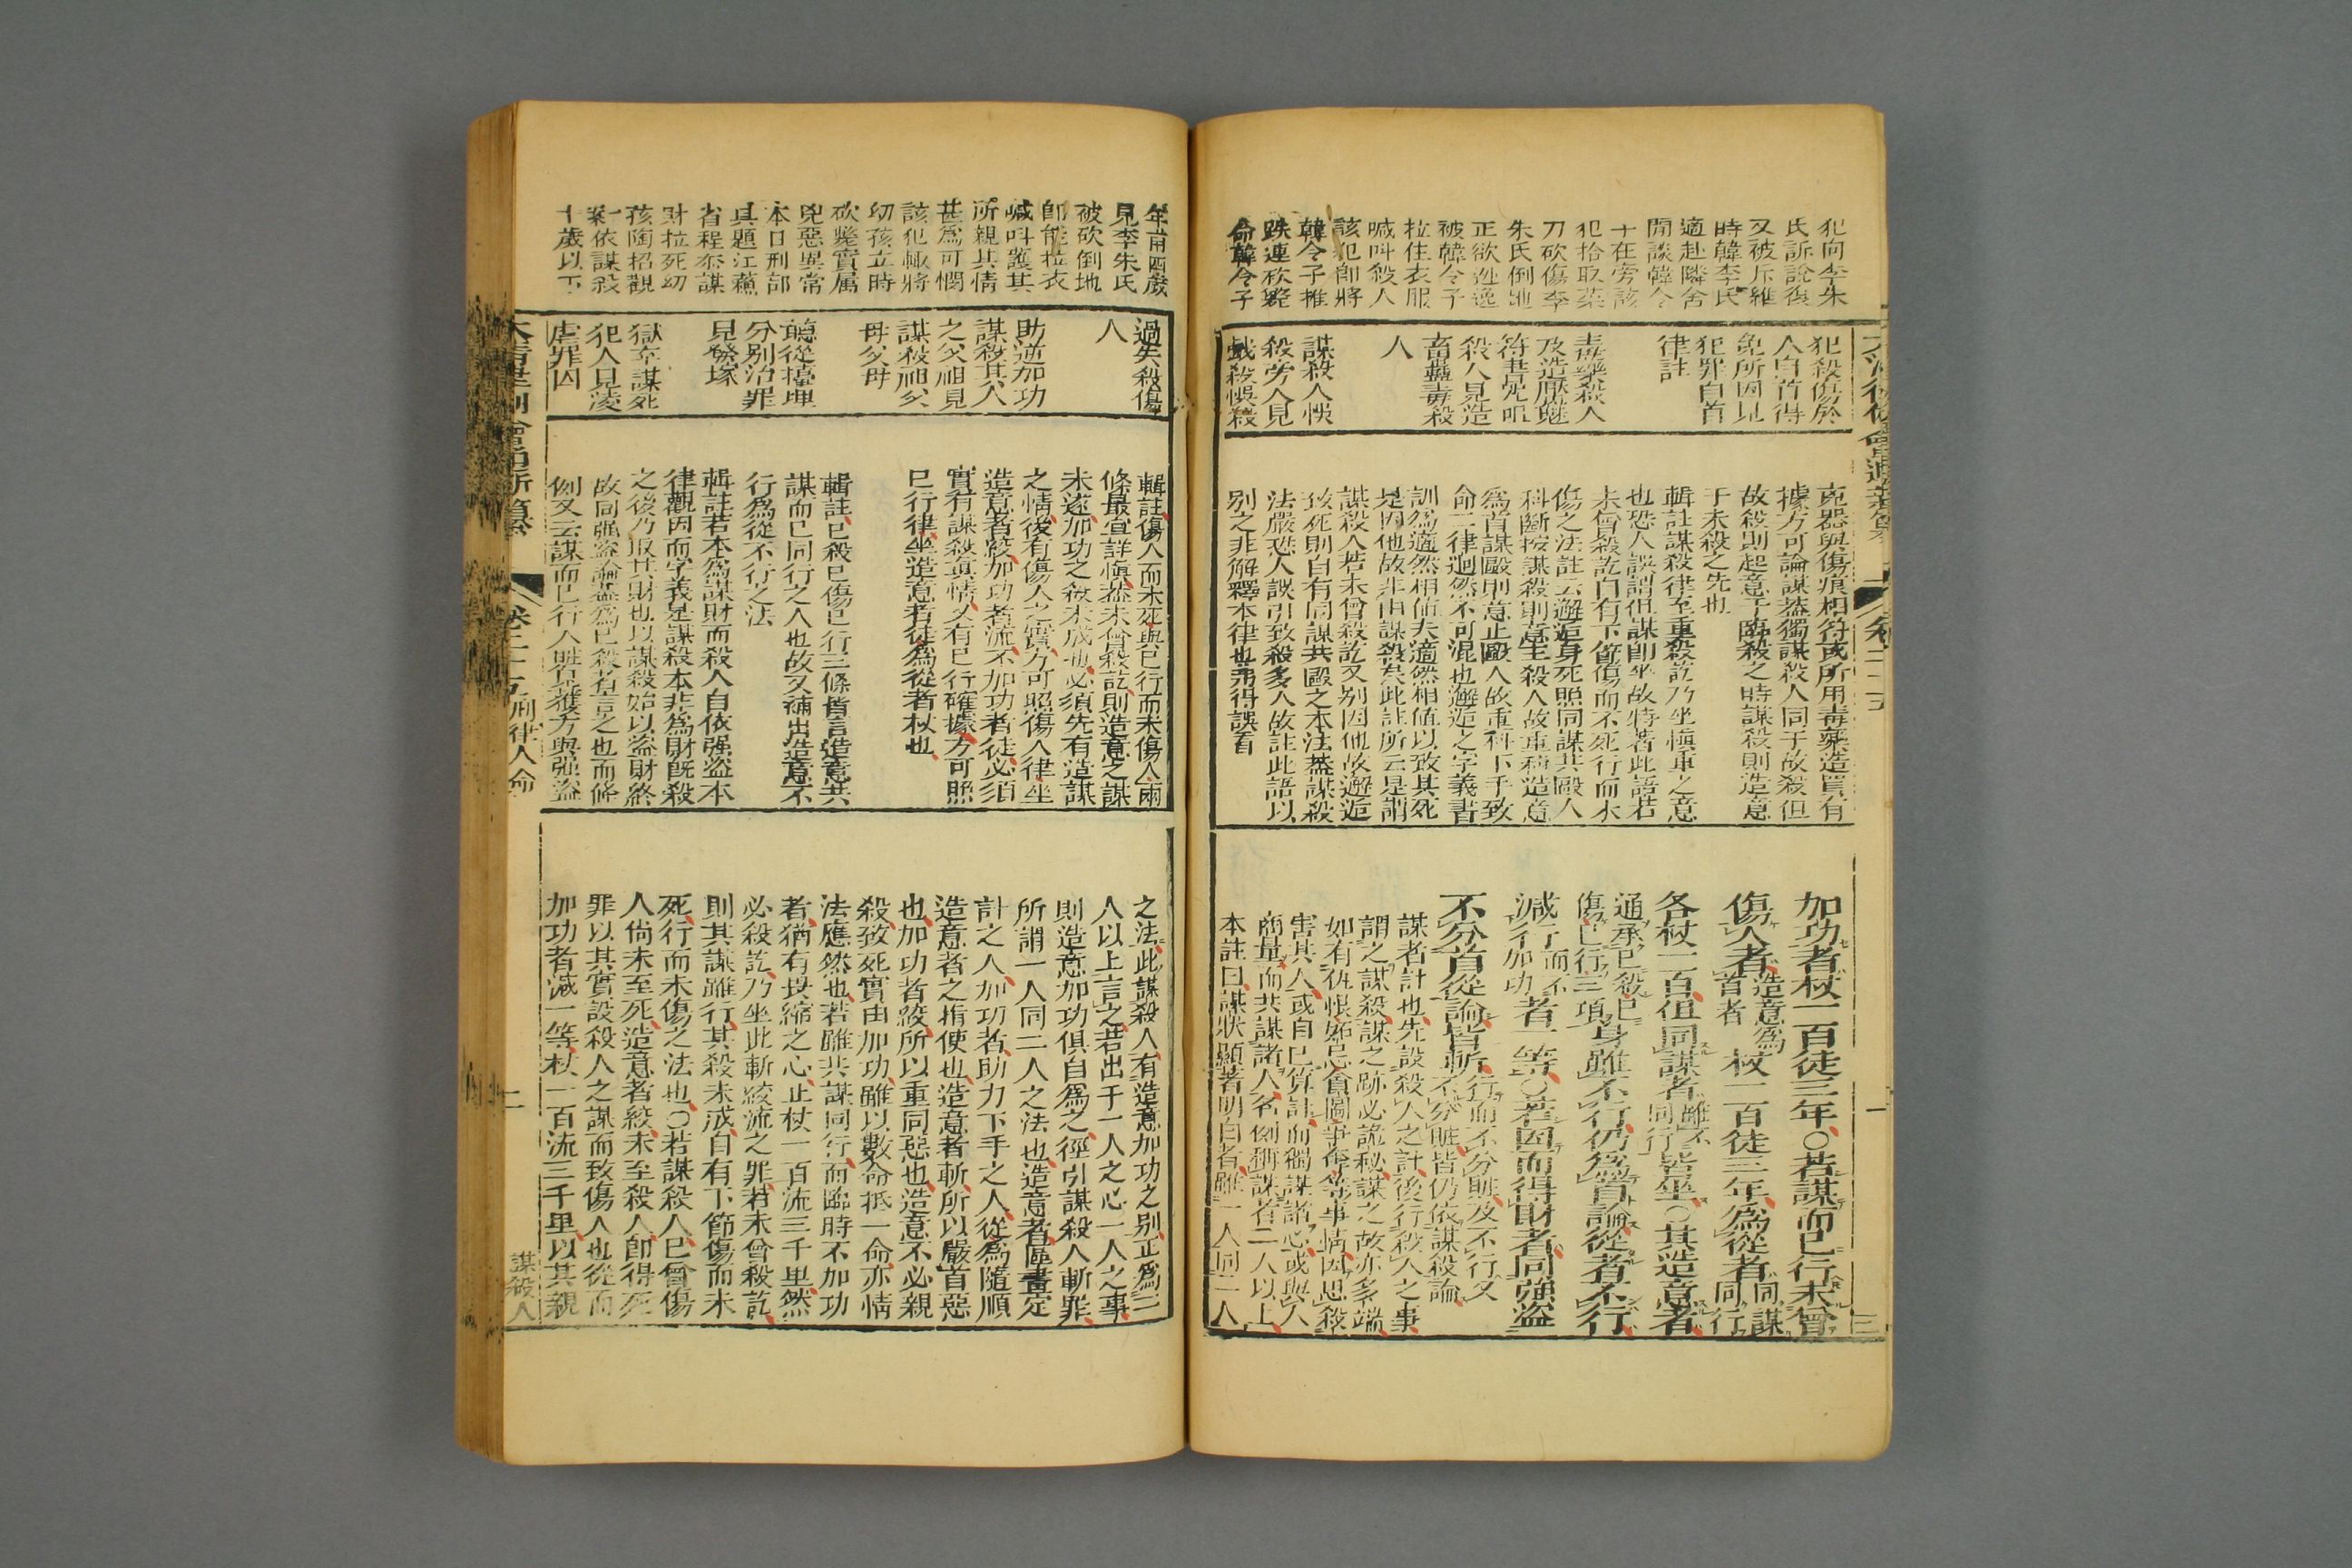 犯向李朱
氏訴說復
又被斥維
時韓李氏
適赴隣舍
閒談韓令
十在旁該
犯拾取菜
刀砍傷李
朱氏倒地
正欲逃逸
被韓令子
拉住衣服
喊叫殺人
該犯即將
韓令子推
跌連砍斃
命韓令子
犯殺傷於
人自首得
免所因見
犯罪自首
律註
毒藥殺人
及造厭魅
符書咒咀
殺人見造
畜蠱毒殺
人
謀殺人悞
殺旁人見
戲殺悞殺
克器與傷痕相符或所用毒藥造買有
據方可論謀蓋獨謀殺人同于故殺但
故殺則起意于臨殺之時謀殺則造意
于未殺之先也
輯註謀殺律至重殺訖乃坐慎重之意
也恐人誤謂但謀即坐故特著此語若
未曾殺訖自有下節傷而不死行而未
傷之法註云邂逅身死照同謀共毆人
科斷按謀殺則意主殺人故重科造意
為首謀毆則意止毆人故重科下手致
命二律迥然不可混也邂逅之字義書
訓為適然相値夫適然相値以致其死
是因他故非由謀殺矣此註所云是謂
謀殺人若未曾殺訖又别因他故邂逅
致死則自有同謀共毆之本法蓋謀殺
法嚴恐人誤引致殺多人故註此語以
别之非解釋本律也弗得誤看
加功者杖一百徒三年○若謀而已行未曾
傷人者造意為首者杖一百徒三年為從者同謀同行
各杖一百但同謀者雖不同行皆坐○其造意者
通承已殺已傷已行三項身雖不行仍為首論從者不行
減行而不加功者一等○若因而得財者同強盜
不分首從論皆斬行而不分賍及不行又不分賍皆仍依謀殺論
謀者計也先設殺人之計後行殺人之事
謂之謀殺謀之跡必詭秘謀之故亦多端
如有仇恨妬忌貪圖爭奪等事情因思殺
害其人或自己算計而獨謀諸心或與人
商量而共謀諸人名例稱謀者二人以上
本註曰謀狀顯著明白者雖一人同二人
年甫四歲
見李朱氏
被砍倒地
即能拉衣
喊叫護其
所親其情
甚為可憫
該犯輒將
幼孩立時
砍斃實属
兇惡異常
本日刑部
具題江蘇
省程夲謀
財拉死幼
孩陶招觀
一案依謀殺
十歲以下
過失殺傷
人
助逆加功
謀殺其人
之父祖見
謀殺祖父
母父母
聽從擡埋
分别治罪
見發塚
獄卒謀死
犯人見淩
虐罪囚
輯註傷人而未死與已行而未傷人兩
條最宜詳慎蓋未曾殺訖則造意之謀
未遂加功之殺未成也必須先有造謀
之情後有傷人之實方可照傷人律坐
造意者絞加功者流不加功者徒必須
實有謀殺眞情又有已行確據方可照
已行律坐造意者徒為從者杖也
輯註已殺已傷已行三條皆言造意共
謀而已同行之人也故又補出造意不
行為從不行之法
輯註若本為謀財而殺人自依强盜本
律觀因而字義是謀殺本非為財既殺
之後乃取其財也以謀殺始以盜財終
故同强盜論蓋為已殺者言之也而條
例又云謀而已行人賍見獲方與强盜
之法此謀殺人有造意加功之别正為二
人以上言之若出于一人之心一人之事
則造意加功俱自為之徑引謀殺人斬罪
所謂一人同二人之法也造意者區畫定
計之人加功者助力下手之人從為隨順
造意者之指使也造意者斬所以嚴首惡
也加功者絞所以重同惡也造意不必親
殺致死實由加功雖以數命抵一命亦情
法應然也若雖共謀同行而臨時不加功
者猶有畏縮之心止杖一百流三千里然
必殺訖乃坐此斬絞流之罪若未曾殺訖
則其謀雖行其殺未成自有下節傷而未
死行而未傷之法也○若謀殺人已曾傷
人尚未至死造意者絞未至殺人即得死
罪以其實設殺人之謀而致傷人也從而
加功者減一等杖一百流三千里以其親
卷二十五刑律人命
二
謀殺人